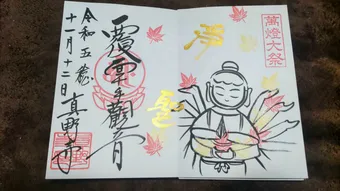 萬燈大祭
覆面千手觀音
令和五歳
十一月十二日 真野寺